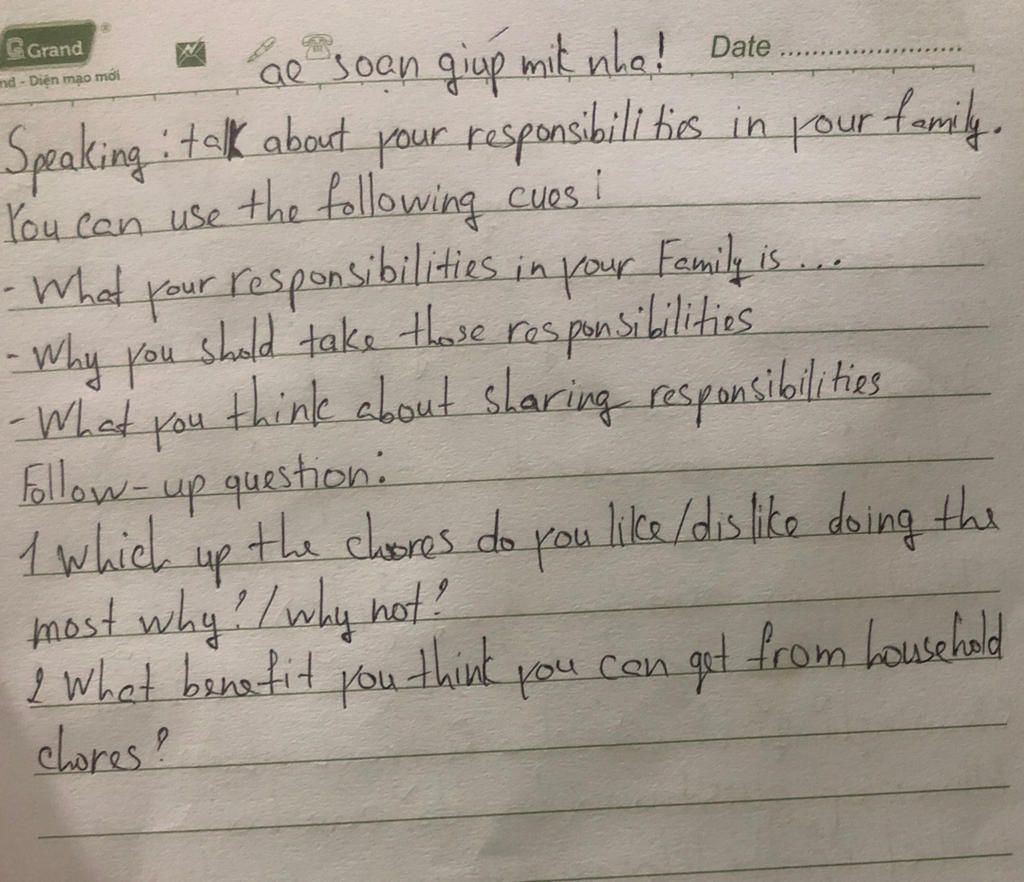 Grand
nd - Diện mạo mới
ae soạn giúp mik nha!
Date ..........................
Speaking : talk about your responsibilities in your family.
You can use the following cues :
- What your responsibilities in your Family is ...
- Why you shold take those responsibilities
- What you think about sharing responsibilities
Follow-up question:
1 Which up the chores do you like/dislike doing the
most why? / why not?
2 What benefit you think you can get from household
chores?